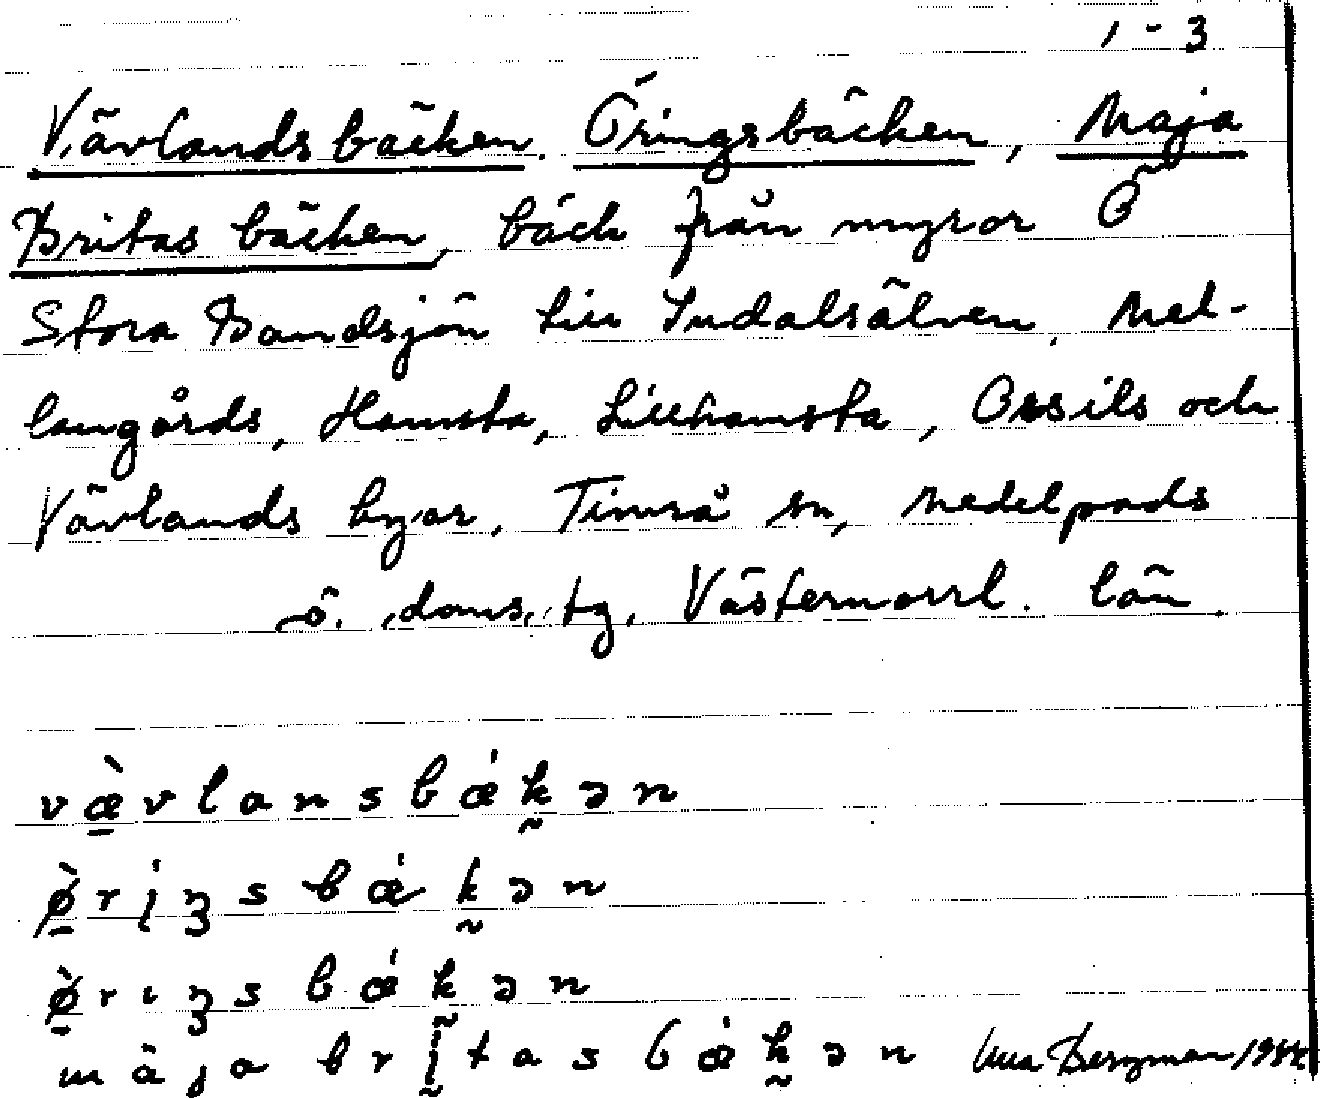 1-3
Vävlandsbäcken, Öringsbäcken, Maja
Britas bäcken, bäck från myror Ö
Stora Bandsjön till Indalsälven, Mel-
langårds, Hamsta, Lillhamsta, Ossils och
Vävlands byar, Timrå sn, Medelpads
ö. doms. tg, Västernorrl. län.
væ̠̀vlansbǽkən
ø̠̀rıŋsbǽkən
ø̠̀rıŋsbǽkən
màja brı̃tasbǽkən Bergman